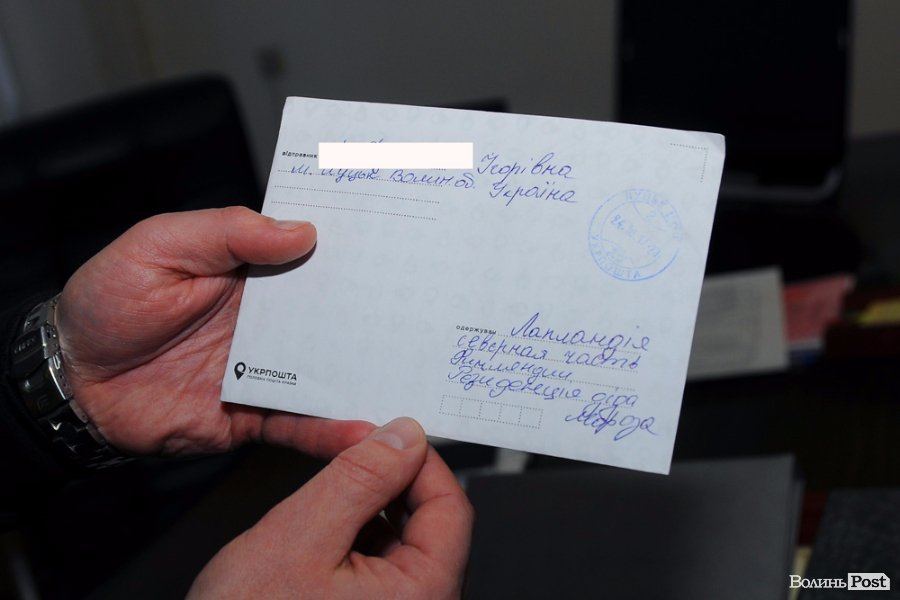 відправник Ігорівна
м. Луцьк Волин.об. Україна
ЛУЦЬК
УКРПОШТА
одержувач Лапландія
северная часть
Финляндии,
Резиденція діда
Мороза
УКРПОШТА
ГОЛОВНА ПОШТА КРАЇНИ
ВолиньPost